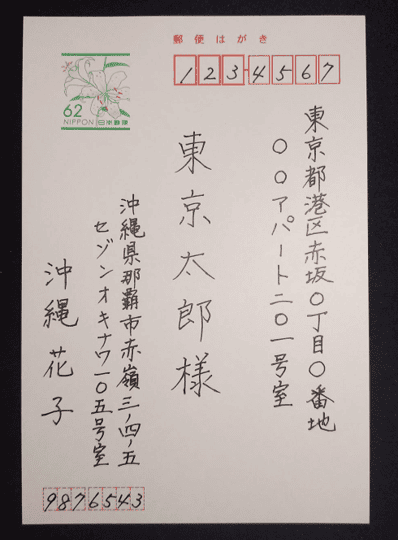 郵便はがき
123-4567
62
NIPPON 日本郵便
東京都港区赤坂〇丁目〇番地
〇〇アパート二〇一号室
東京太郎様
沖縄県那覇市赤嶺三ノ四ノ五
セゾンオキナワ一〇五号室
沖縄花子
9876543